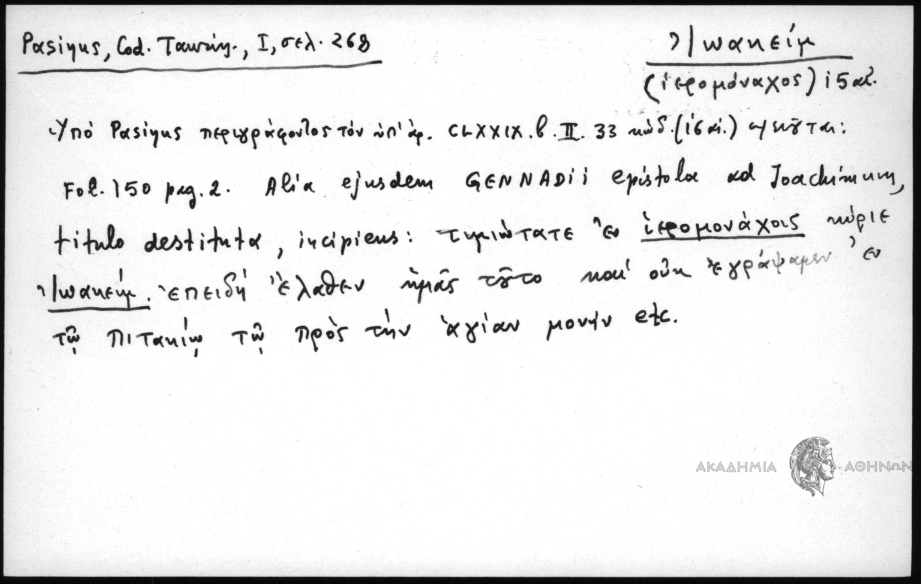 Pasinus, Cod. Taurin., I, σελ. 268
Ἰωακείμ
(ἱερομόναχος) 15 αἰ.
Ὑπό Pasinus περιγράφοντος τόν ὑπ' ἀρ. CLXXIX. b. II. 33 κώδ. (16 αἰ.) σημειοῦται:
Fol. 150 pag. 2. Alia ejusdem GENNADII epistola ad Joachimum,
titulo destituta, incipiens: τιμιώτατε ἐν ἱερομονάχοις κύριε
Ἰωακείμ. ἐπειδή ἔλαθεν ἡμᾶς τοῦτο καί οὐκ ἐγράψαμεν ἐν
τῷ πιτακίῳ τῷ πρὸς τήν ἁγίαν μονήν etc.
ΑΚΑΔΗΜΙΑ ΑΘΗΝΩΝ